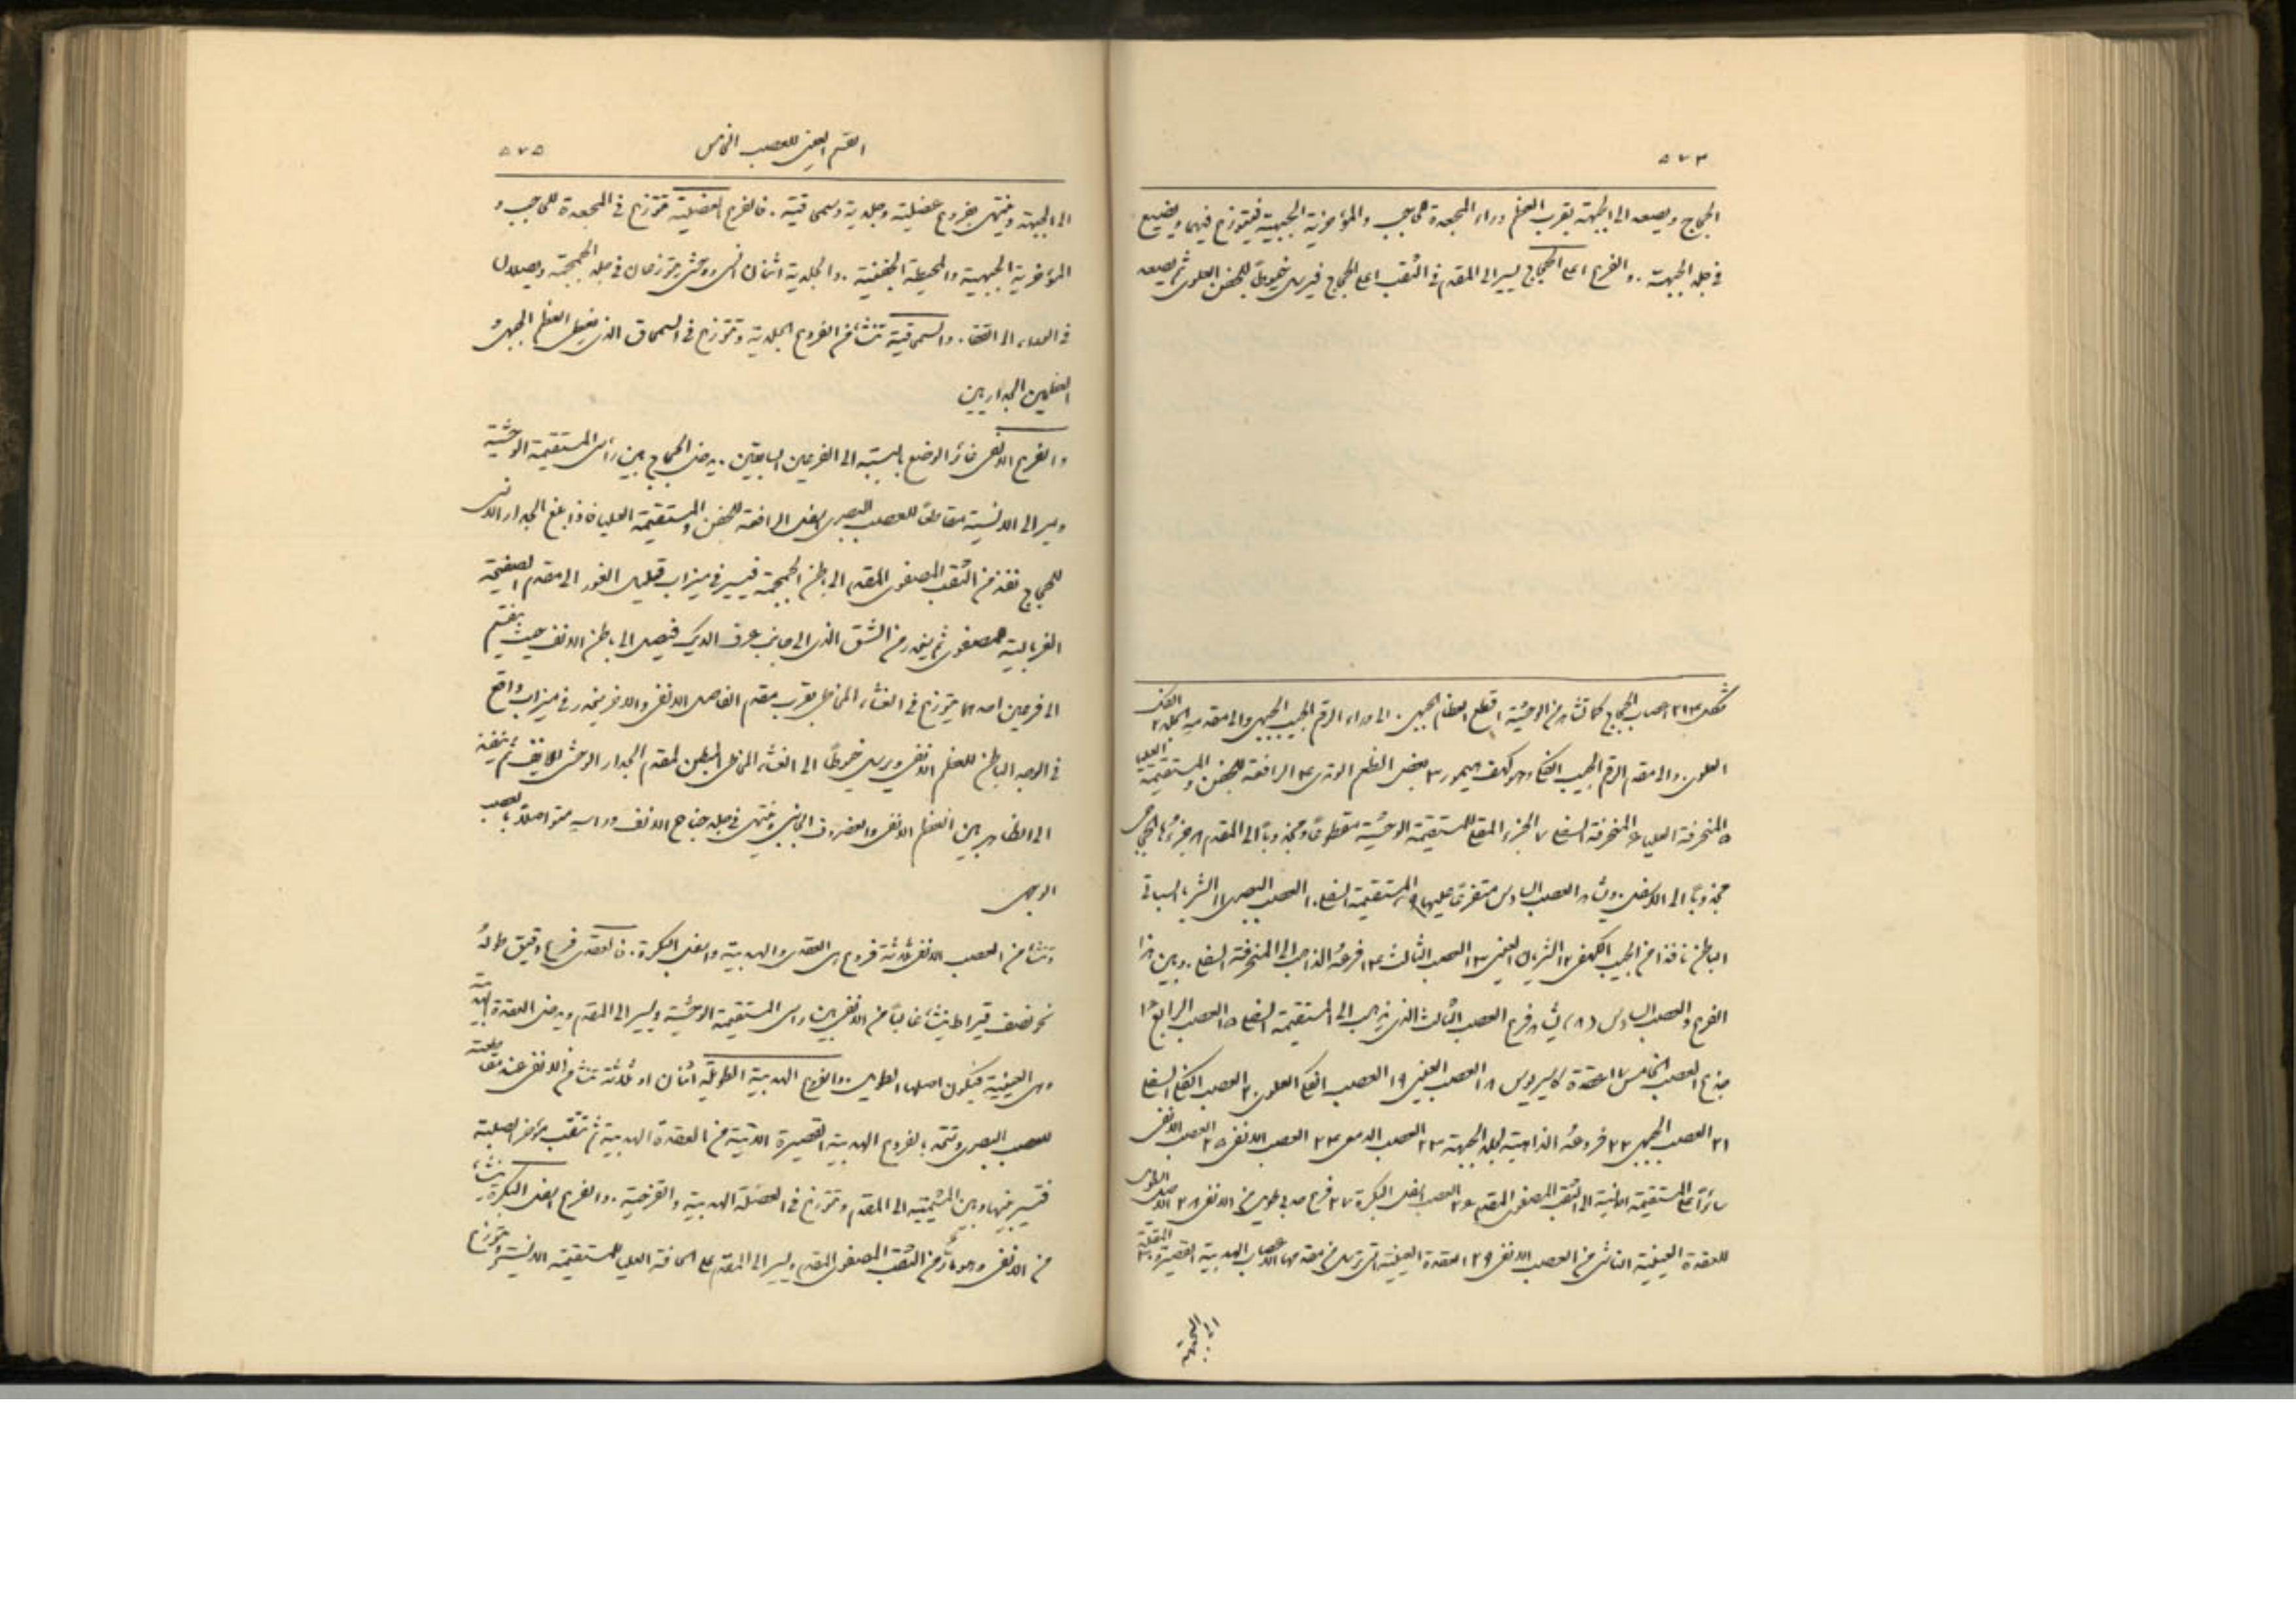 ٥٧٤
الحجاج ويصعد الى الجبهة بقرب العظم وراء المجعدة للحاجب والمؤخرية الجبهية فيتوزع فيهما ويضيع
في جلد الجبهة. والفرع اعلى الحجاج يسير الى المقدم في الثقب اعلى الحجاج فيرسل خيوطاً للجفن العلوي ثم يصعد
شكل ٢١٤ اعصاب الحجاج كما تشاهد من الوحشية ١ قطع العظم الجبهي. الى وراء الرقم الجيب الجبهي والى مقدمه الجلد ٢ الفك
العلوي. والى مقدم الرقم الجيب الفكي وهو كهف هيمور ٣ بعض العظم الوتدي ٤ الرافعة للجفن والمستقيمة العليا
٥ المنحرفة العليا ٦ المنحرفة السفلى ٧ الجزء المقدم للمستقيمة الوحشية مقطوعاً ومجذوباً الى المقدم ٨ جزءها الحجاجي
مجذوباً الى الاسفل. ويشاهد العصب السادس متفرقاً عليها ٩ المستقيمة السفلى ١٠ العصب البصري ١١ الشريان السباتي
الباطن نافذا من الجيب الكهفي ١٢ الشريان العيني ١٣ العصب الثالث ١٤ فرعه الذاهب الى المنحرفة السفلى. وبين هذا
الفرع والعصب السادس (٨) يشاهد فرع العصب الثالث الذي يذهب الى المستقيمة السفلى ١٥ العصب الرابع ١٦
جذع العصب الخامس ١٧ عقدة كاسيريوس ١٨ العصب العيني ١٩ العصب الفكي العلوي ٢٠ العصب الفكي السفلي
٢١ العصب الجبهي ٢٢ فروعه الذاهبة لجلد الجبهة ٢٣ العصب الدمعي ٢٤ العصب الانفي ٢٥ العصب الانفي
سائراً على المستقيمة الانسية الى الثقب المصفوي المقدم ٢٦ العصب اسفل البكرة ٢٧ فرع هدبي طويل من الانفي ٢٨ الاصل الطويل
للعقدة العينية الناشئ من العصب الانفي ٢٩ العقدة العينية التي ترسل من مقدمها الاعصاب الهدبية القصيرة ٣٠ المقلة
الى الجبهة
القسم العيني للعصب الخامس ٥٧٥
الى الجبهة وينتهي بفروع عضلية وجلدية وسمحاقية. فالفروع العضلية تتوزع في المجعدة للحاجب و
المؤخرية الجبهية والمحيطة الجفنية. والجلدية اثنان انسي ووحشي يتوزعان في جلد الجمجمة ويصلان
في الوراء الى القفا. والسمحاقية تنشأ من الفروع الجلدية وتتوزع في السمحاق الذي يغطي العظم الجبهي و
العظمين الجداريين
والفرع الانفي غائر الوضع بالنسبة الى الفرعين السابقين. يدخل الحجاج بين رأسي المستقيمة الوحشية
ويسير الى الانسية مقاطعاً للعصب البصري اسفل الرافعة للجفن والمستقيمة العليا فاذا بلغ الجدار الانسي
للحجاج نفذ من الثقب المصفوي المقدم الى باطن الجمجمة فيسير في ميزاب قليل الغور الى مقدم الصفيحة
الغربالية للمصفوي ثم ينحدر من الشق الذي الى جانب عرف الديك فيصل الى باطن الانف حيث ينقسم
الى فرعين احدهما يتوزع في الغشاء المخاطي بقرب مقدم الفاصل الانفي والاخر ينحدر في ميزاب واقع
في الوجه الباطن للعظم الانفي ويرسل خيوطاً الى الغشاء المخاطي المبطن لمقدم الجدار الوحشي للانف ثم ينفذ
الى الظاهر بين العظم الانفي والغضروف الجانبي وينتهي في جلد جناح الانف ورأسه متواصلاً بالعصب
الوجهي
وتنشأ من العصب الانفي ثلاثة فروع هي العقدي والهدبية واسفل البكرة. فالعقدي فرع دقيق طوله
نحو نصف قيراط ينشأ غالباً من الانفي بين رأسي المستقيمة الوحشية ويسير الى المقدم ويدخل العقدة الهدبية
وهي العينية فيكون اصلها الطويل. والفروع الهدبية الطويلة اثنان او ثلاثة تنشأ من الانفي عند مقاطعته
للعصب البصري وتتحد بالفروع الهدبية القصيرة الآتية من العقدة الهدبية ثم تثقب مؤخر الصلبة
فتسير بينها وبين المشيمية الى المقدم وتتوزع في العضلة الهدبية والقزحية. والفرع اسفل البكرة ينشأ
من الانفي وهو مار من الثقب المصفوي المقدم ويسير الى المقدم على الحافة العليا للمستقيمة الانسية ويتوزع